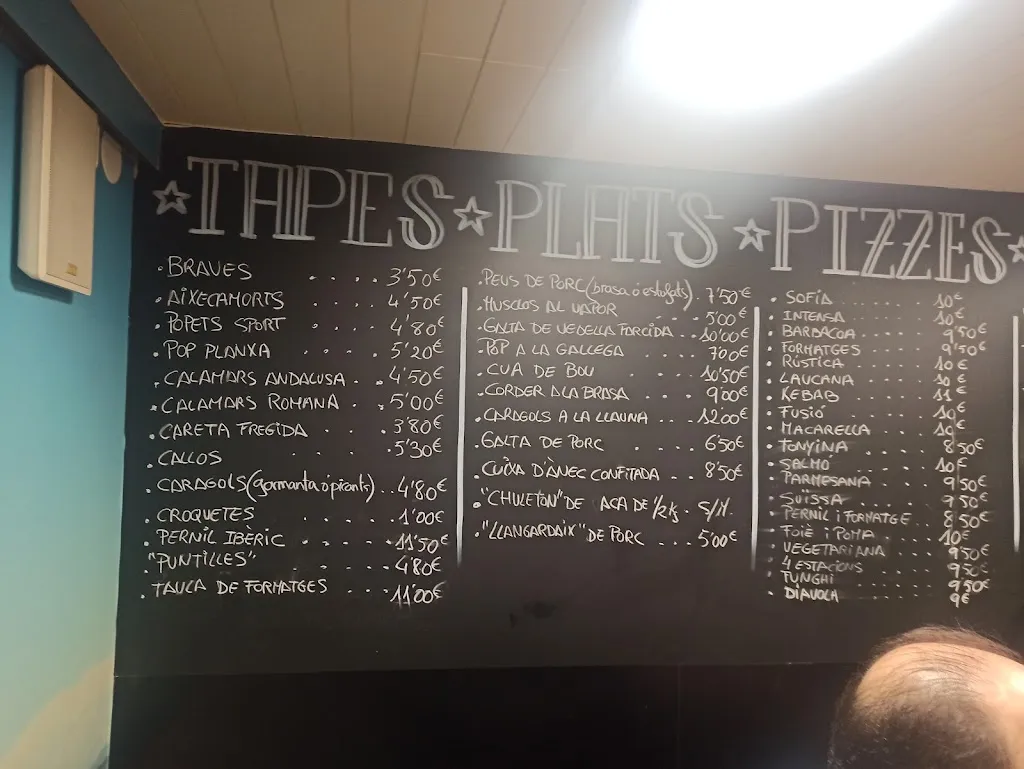 TAPES
· BRAVES .... 3'50€
· AIXECAMORTS .... 4'50€
· POPETS SPORT .... 4'80€
· POP PLANXA .... 5'20€
· CALAMARS ANDALUSA . . 4'50€
· CALAMARS ROMANA . . 5'00€
· CARETA FREGIDA . . 3'80€
· CALLOS . . 5'30€
· CARAGOLS (garmanta o picants) . . 4'80€
· CROQUETES .... 1'00€
· PERNIL IBÈRIC .... 11'50€
· "PUNTILLES" .... 4'80€
· TAULA DE FORMATGES ... 11'00€
PLATS
· PEUS DE PORC (brasa o estofats) . 7'50€
· MUSCLOS AL VAPOR .... 5'00€
· GALTA DE VEDELLA FARCIDA . . 10'00€
· POP A LA GALLEGA .... 7'00€
· CUA DE BOU .... 10'50€
· CORDER A LA BRASA ... 9'00€
· CARAGOLS A LA LLAUNA ... 12'00€
· GALTA DE PORC .... 6'50€
· CUIXA D'ÀNEC CONFITADA .. 8'50€
· "CHULETON" DE ACA DE 1/2 kg . S/M.
· "LLANGARDAIX" DE PORC ... 5'00€
PIZZES
· SOFÍA .... 10€
· INTENSA .... 10€
· BARBACOA .... 9'50€
· FORMATGES .... 9'50€
· RÚSTICA .... 10€
· LAUCANA .... 10€
· KEBAB .... 11€
· FUSIÓ .... 10€
· MACARELLA .... 10€
· TONYINA .... 8'50€
· SALMÓ .... 10€
· PARMESANA .... 9'50€
· SUÏSSA .... 9'50€
· PERNIL I FORMATGE . 8'50€
· FOIE I POMA .... 10€
· VEGETARIANA .... 9'50€
· 4 ESTACIONS .... 9'50€
· FUNGHI .... 9'50€
· DIAVOLA .... 9€